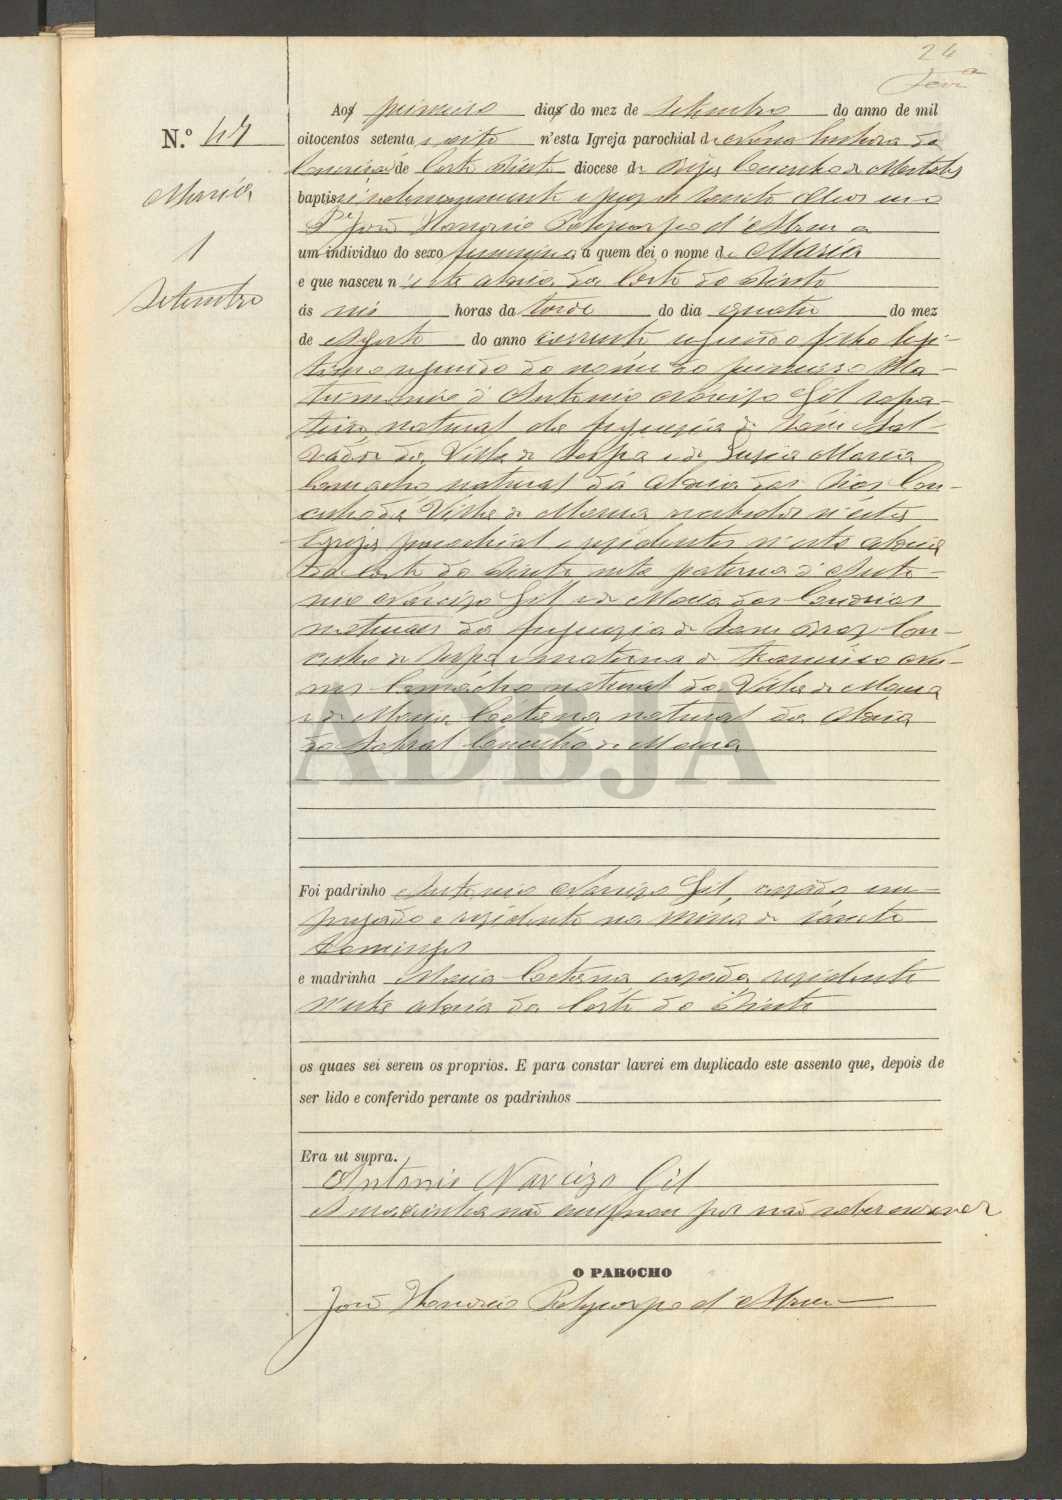 24
N.º 47
Maria
1
Setembro
Aos primeiro dias do mez de Setembro do anno de mil
oitocentos setenta e oito n'esta Igreja parochial de Nossa Senhora da
Conceição de Corte do Pinto diocese de Beja Concelho de Mertola
baptisei solemnemente e puz os Santos Oleos eu o
P.e João Honorio Polycarpo d'Abreu a
um individuo do sexo feminino a quem dei o nome de Maria
e que nasceu n'esta aldeia da Corte do Pinto
ás horas da tarde do dia quatro do mez
de Agosto do anno corrente segundo filho legi-
timo segundo do nome do primeiro Ma-
trimonio d'Antonio Narcizo Gil sapa-
teiro natural da freguezia de São Sal-
vador da Villa de Serpa e de Luzia Maria
Camacho natural da aldeia dos Con-
celho da Villa de Moura recebidos n'esta
Igreja parochial e rezidentes n'esta aldeia
da Corte do Pinto neta paterna d'Anto-
nio Narcizo Gil e de Maria das Candeias
naturaes da freguezia de Con-
celho de Serpa e materna de Francisco Nu-
nes Camacho natural da Villa de Moura
e de Maria Caetana natural da Aldeia
do Sobral Concelho de Moura
ADBJA
Foi padrinho Antonio Narcizo Gil, cazado em-
pregado e rezidente na Mina de Santo
Domingos
e madrinha Maria Caetana cazada rezidente
n'esta aldeia da Corte do Pinto
os quaes sei serem os proprios. E para constar lavrei em duplicado este assento que, depois de
ser lido e conferido perante os padrinhos
Era ut supra.
Antonio Narcizo Gil
A madrinha não assignou por não saber escrever
O PAROCHO
João Honorio Polycarpo d'Abreu